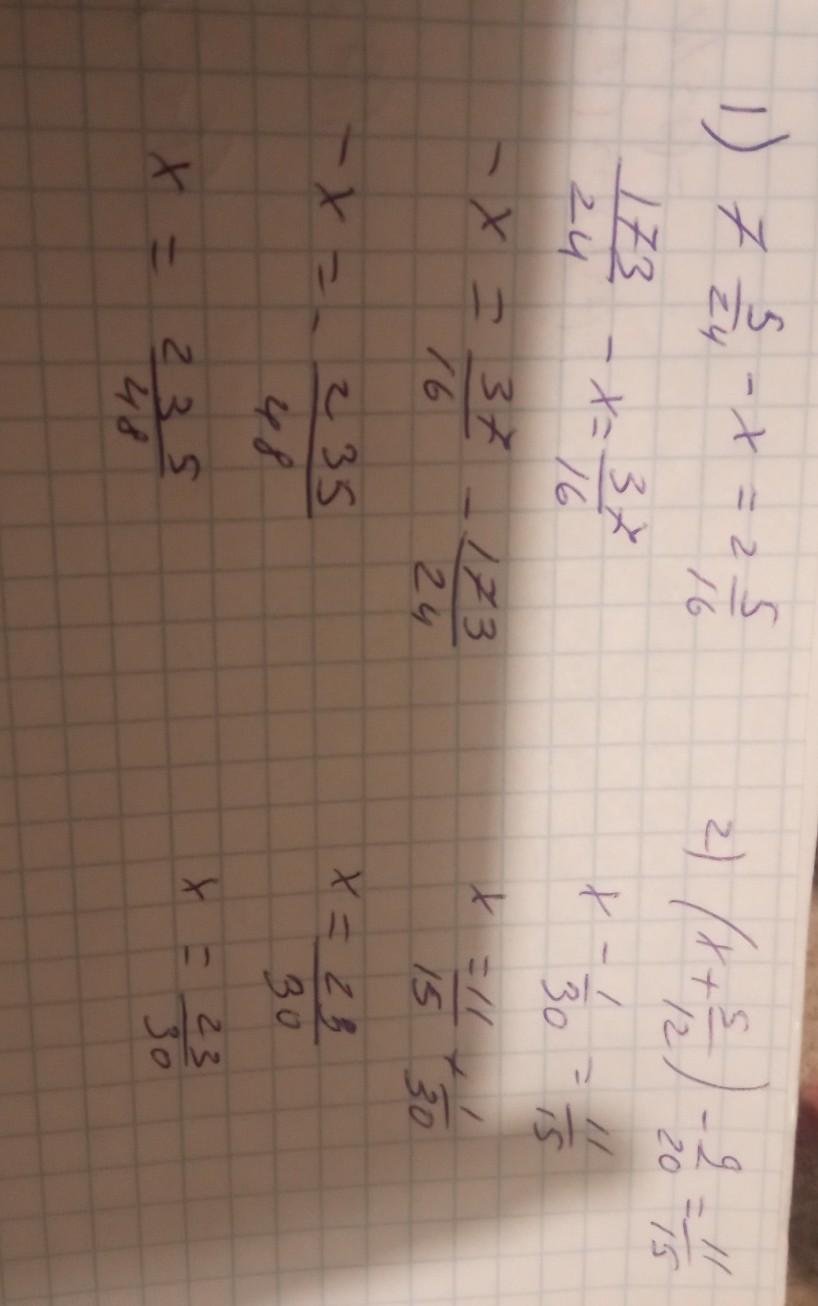 1) 7 5/24 - x = 2 5/16
173/24 - x = 37/16
- x = 37/16 - 173/24
- x = - 235/48
x = 235/48
2) (x + 5/12) - 9/20 = 11/15
x - 1/30 = 11/15
x = 11/15 + 1/30
x = 23/30
x = 23/30